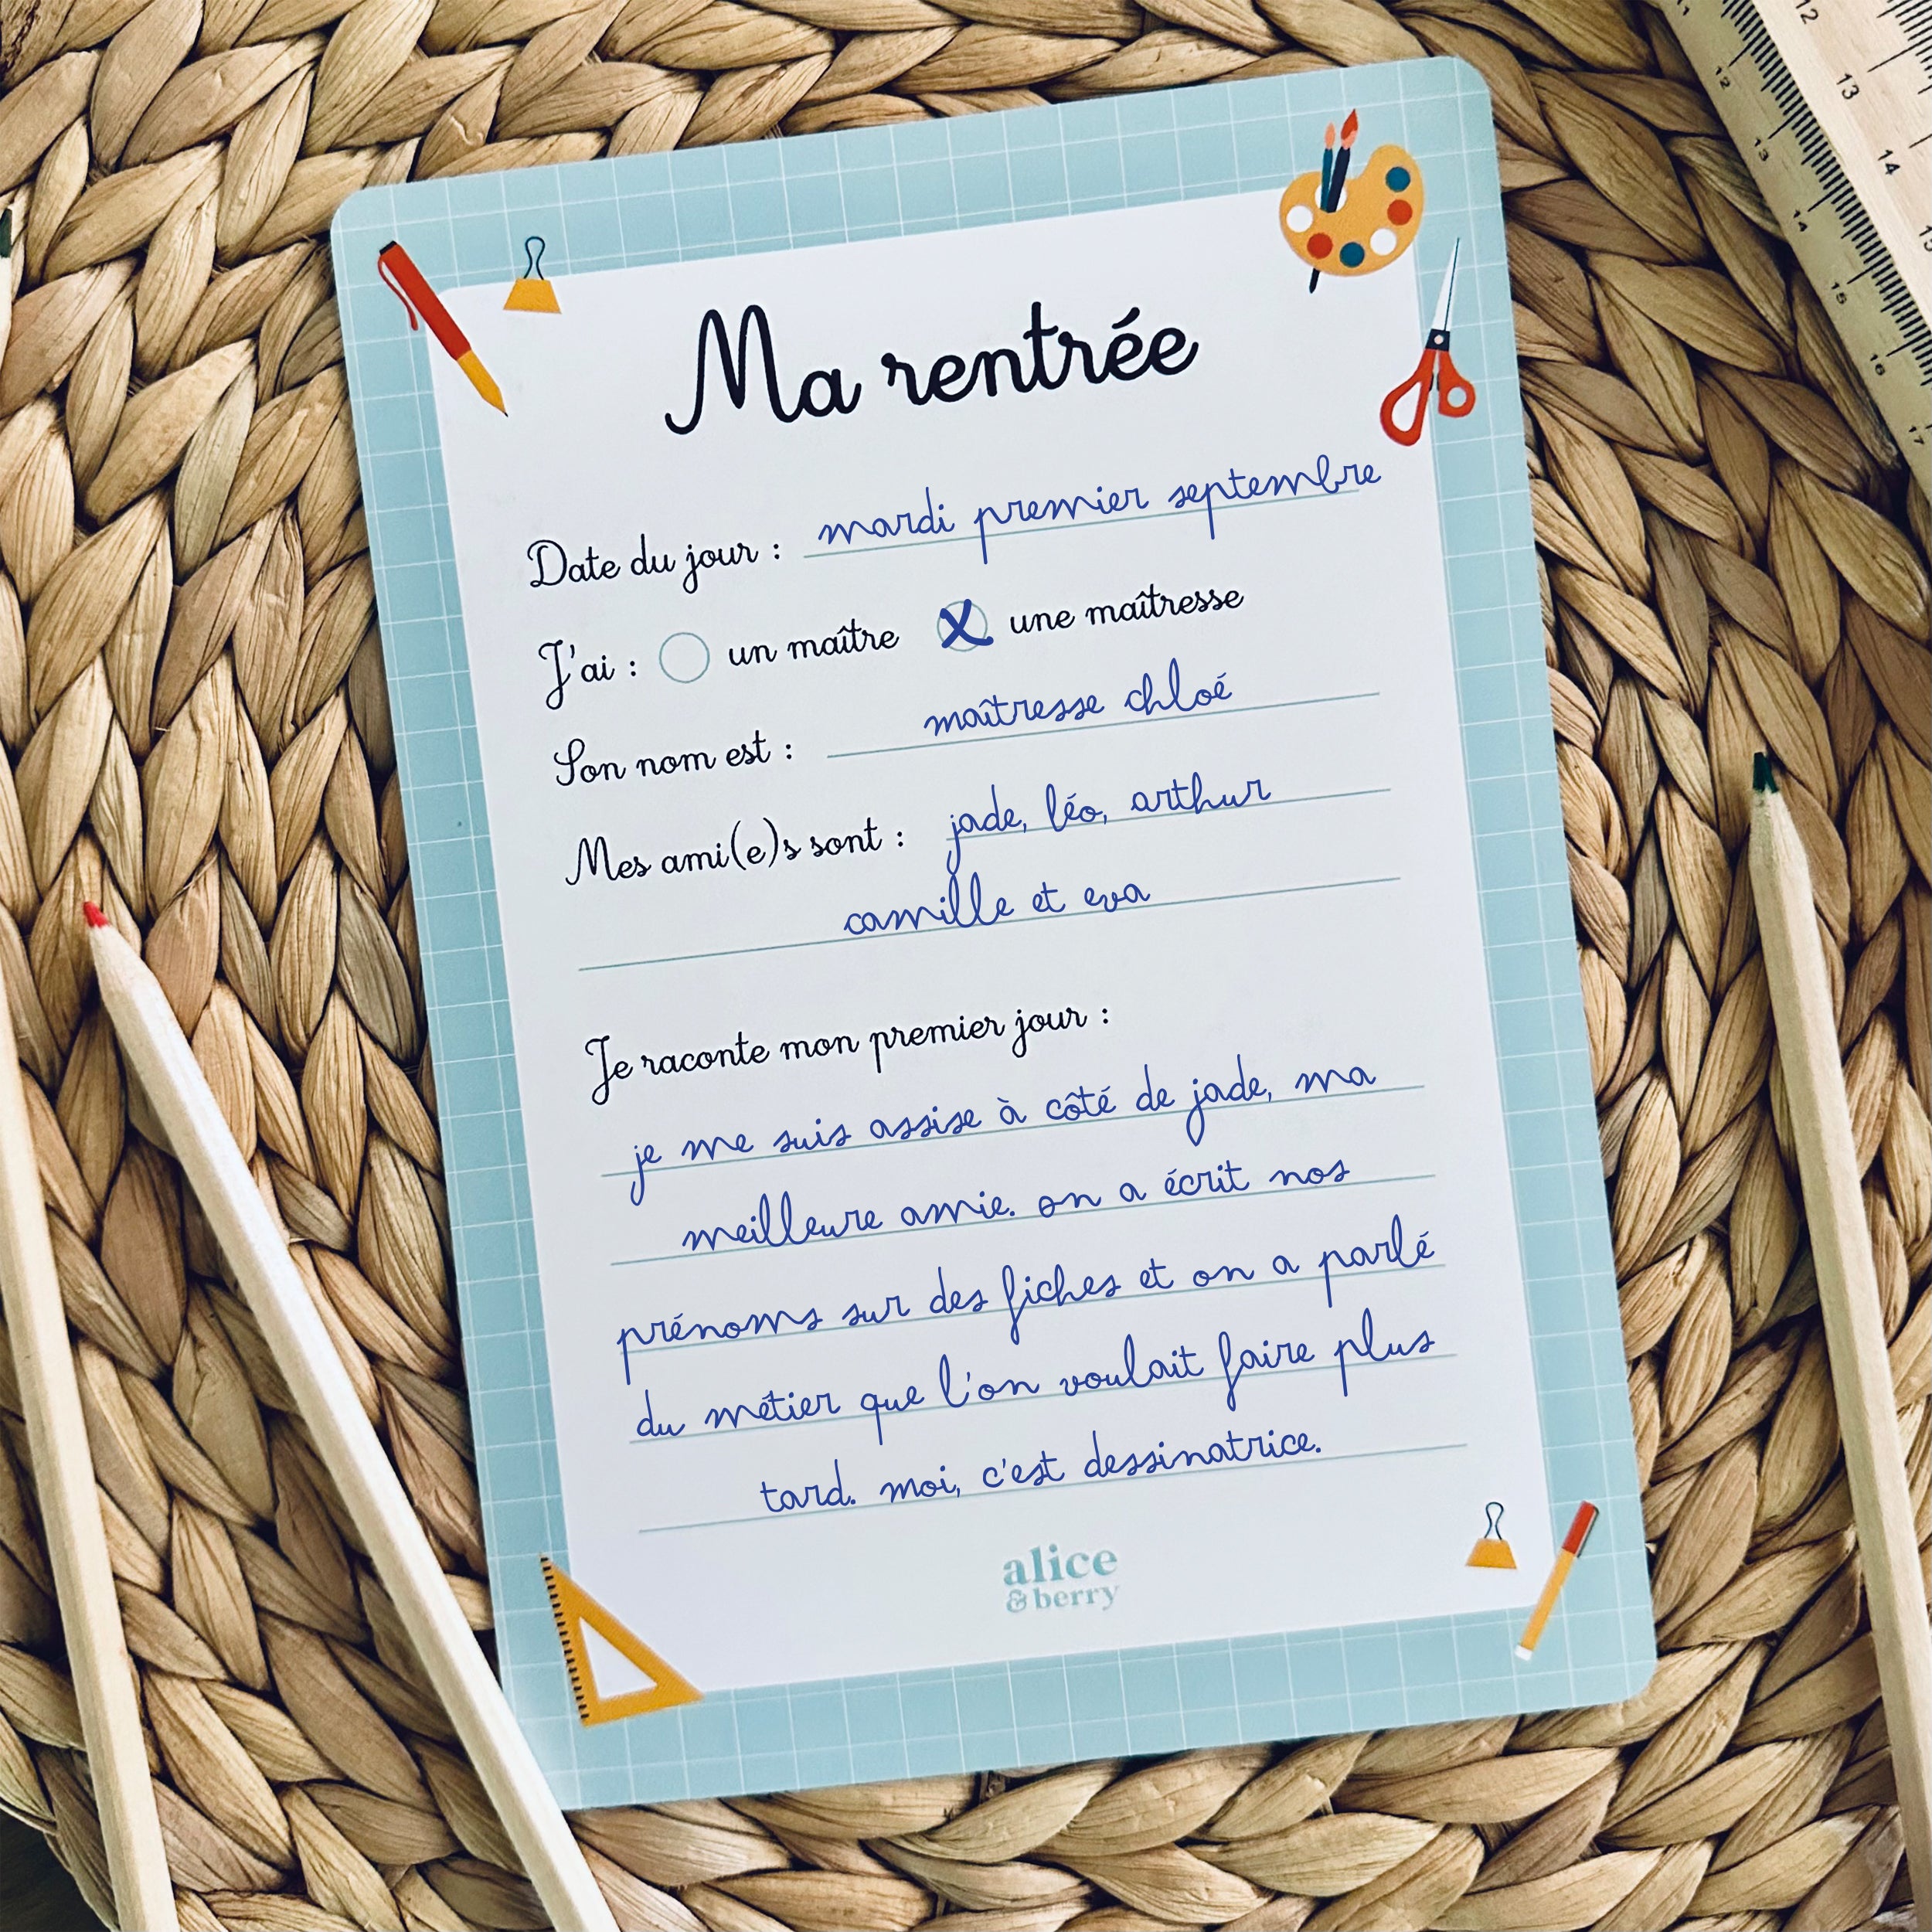 Ma rentrée
Date du jour : mardi premier septembre
J'ai : un maître X une maîtresse
Son nom est : maîtresse chloé
Mes ami(e)s sont : jade, léo, arthur
camille et eva
Je raconte mon premier jour :
je me suis assise à côté de jade, ma
meilleure amie. on a écrit nos
prénoms sur des fiches et on a parlé
du métier que l'on voulait faire plus
tard. moi, c'est dessinatrice.
alice
& berry
11
12
13
14
15
16
17
12
13
14